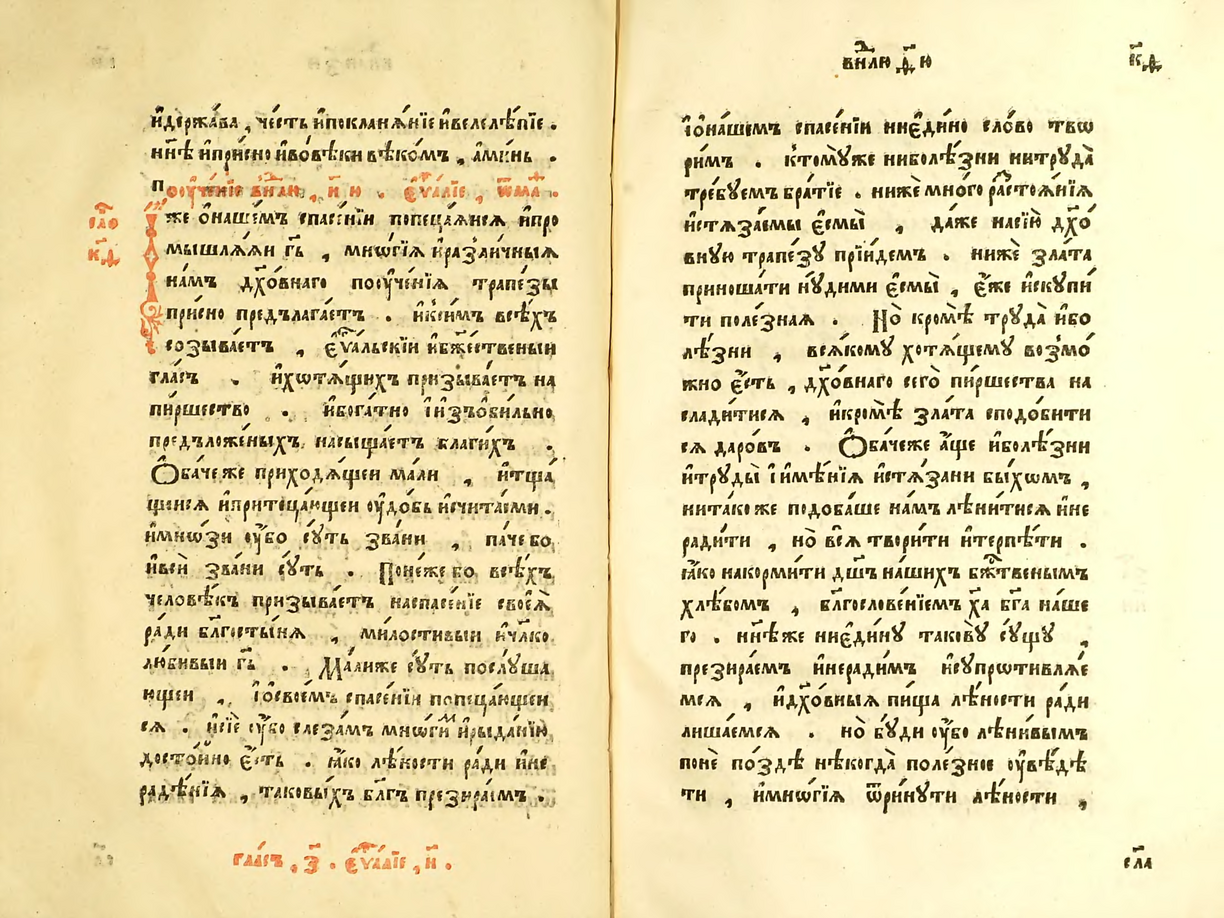 и҆держа́ва , че́сть и҆покланѧ́нїе и҆велелѣ́пїе .
нн҃ѣ и҆при́сно и҆вовѣ́ки вѣко́мъ , а҆ми́нь .
поꙋче́нїе внлю , и҃ ю . є҆ѵⷢ҇а́лїе , ѿ маⷴ .
сло
к҃д
И҆же о҆на́шемъ спасе́нїи попеца́ѧисѧ и҆про
мышлѧ́ѧи гь҃ , мнѡ́гїѧ и҆разли́чныѧ
на́мъ дх҃о́внаго поꙋче́нїѧ трапе́зы
при́сно предълага́етъ . и҆кси́мъ всѣ́хъ
созыва́етъ , є҆ѵⷢ҇а́льскїи и҆бж҃е́ственыи
гла́съ . и҆хотѧ́щихъ призыва́етъ на
пи́ршество . и҆бога́тно і҆и҆зъѻ҆би́льно
предъложе́ныхъ насыща́етъ благи́хъ .
Ѻ҆ба́чеже приходѧ́щеи ма́ли , и҆тща́
щиисѧ и҆притеца́ющеи оу҆до́бь и҆счита́еми .
и҆мно́зи оу҆́бо сꙋ́ть зва́ни , па́че бо
и҆всѝ зва́ни сꙋ́ть . Поне́же бо всѣ́хъ
человѣ́къ призыва́етъ наспасе́нїе своеѧ̀
ра́ди бл҃госты́нѧ , ми́лостивыи и҆чл҃ко
любивыи гь҃ . Ма́лиже сꙋ́ть послꙋ́ша
ющеи , і҆ѻ҆свое́мъ спасе́нїи попеца́ющеи
сѧ . и҆сїѐ оу҆́бо слеза́мъ мнѡ́гиⷨ и҆рыда́нїю
досто́йно є҆́сть . ꙗ҆́ко лѣ́ности ра́ди и҆не
радѣ́нїѧ , таковы́хъ бл҃гъ презира́имъ .
гла́съ , з҃ . є҆ѵⷢ҇а́лїе , и҃ .
внлю д҃ ю
к҃д
і҆ѻ҆на́шемъ спасе́нїи ниє҆ди́но сло́во твѡ
ри́мъ . ктомꙋ́же ниболѣ́зни нитрꙋда̀
тре́бꙋемъ бра́тїе . ни́же мно́го растоѧ́нїѧ
и҆стѧза́емы є҆смы̀ , да́же насїю̀ дх҃о́
внꙋю трапе́зꙋ прїи́демъ . ни́же зла́та
приноша́ти нꙋ́дими є҆смы̀ , є҆́же и҆скꙋпи́
ти поле́знаѧ . Но̀ кро́мѣ трꙋда̀ и҆бо
лѣ́зни , всѧ́комꙋ хотѧ́щемꙋ возмо́
жно є҆́сть , дх҃о́внаго сего̀ пи́ршества на
слади́тисѧ , и҆кро́мѣ зла́та сподо́бити
сѧ даро́въ . Ѻ҆ба́чеже а҆́ще и҆болѣ́зни
и҆трꙋды̀ і҆и҆мѣ́нїѧ и҆стѧ́зани бы́хѡмъ ,
нитако́же подоба́ше на́мъ лѣни́тисѧ и҆не
ради́ти , но̀ всѧ̀ твори́ти и҆терпѣ́ти .
ꙗ҆́ко накорми́ти дш҃ъ на́шихъ бж҃твенымъ
хлѣ́бомъ , бл҃гослове́нїемъ хⷭ҇а̀ бг҃а на́ше
го . нн҃ѣже ниє҆ди́нꙋ такову̀ сꙋ́щꙋ ,
презира́емъ и҆неради́мъ и҆сꙋпрѡтивлѧ́е
мсѧ , и҆дх҃о́вныѧ пи́ща лѣ́ности ра́ди
лиша́емсѧ . но̀ бꙋ́ди оу҆́бо лѣни́вымъ
понѐ по́здѣ нѣ́когда̀ поле́зное оу҆вѣ́дѣ
ти , и҆мнѡ́гїѧ ѿри́нꙋти лѣ́ности ,
сла